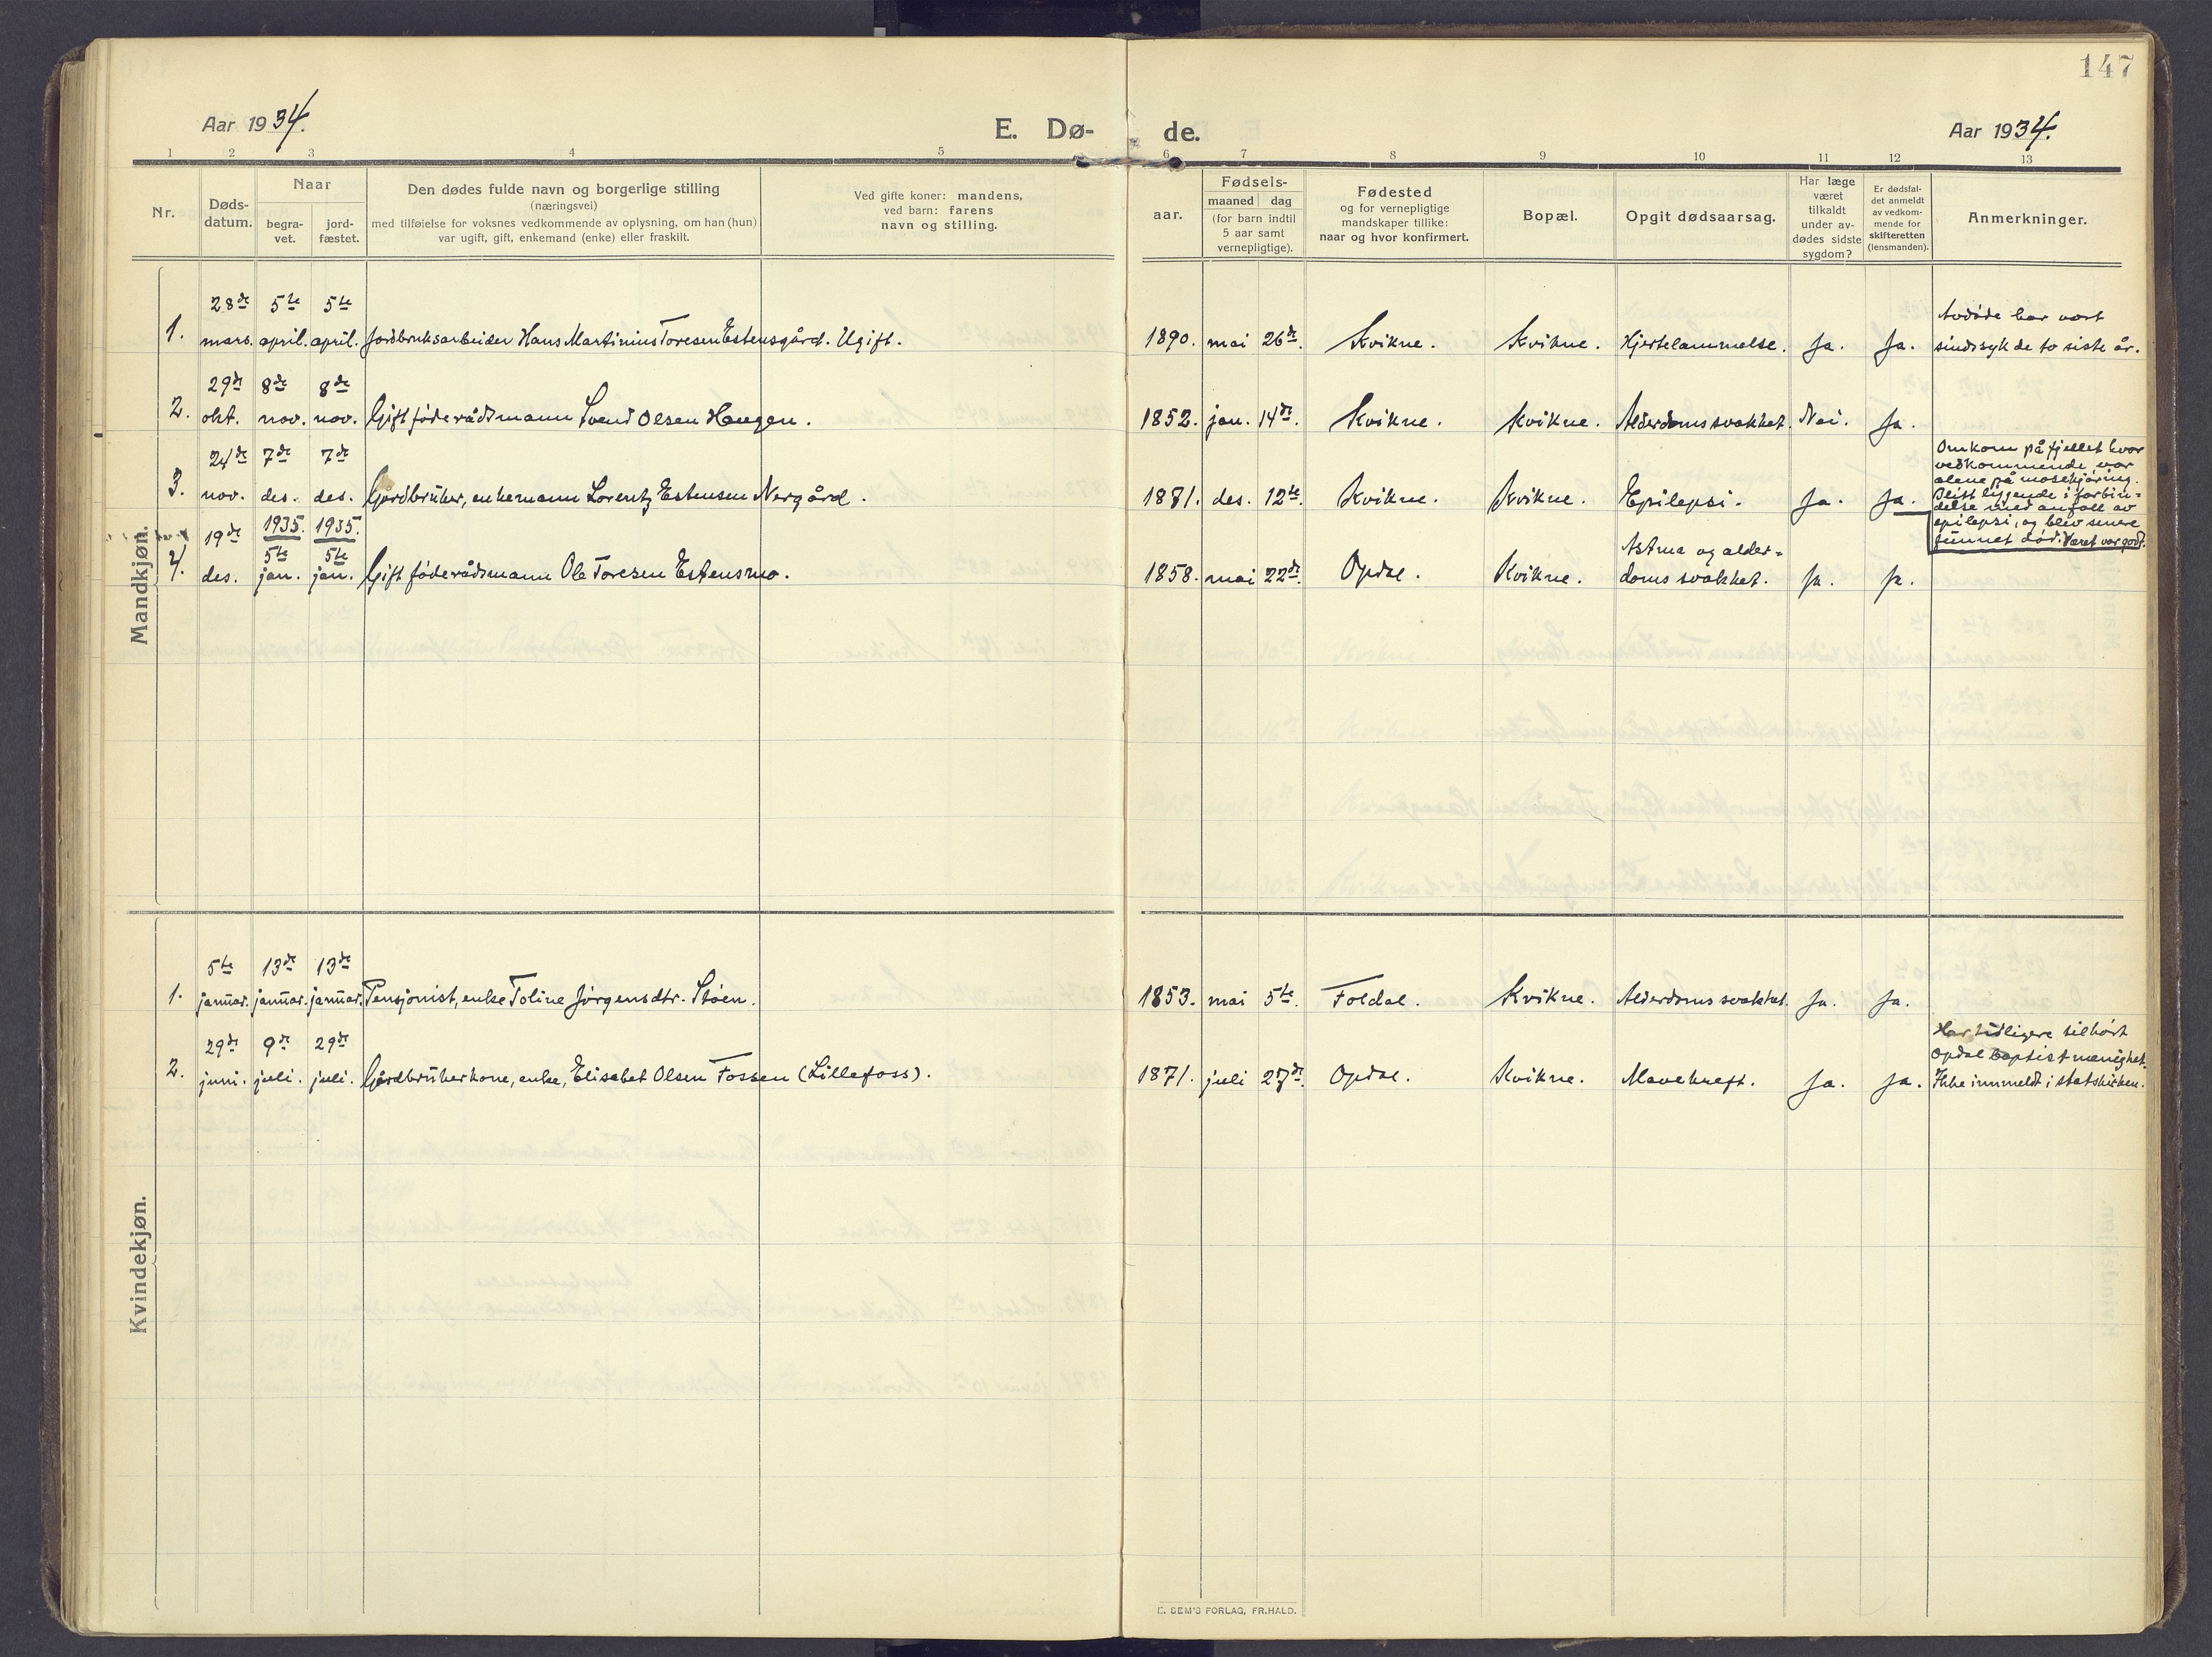 147
Aar 1934.
E. Dø- de.
Aar 1934.
1 2 3 4 5 6 7 8 9 10 11 12 13
Nr.
Døds-
datum.
Naar
begra-
vet.
jord-
fæstet.
Den dødes fulde navn og borgerlige stilling
(næringsvei)
med tilføielse for voksnes vedkommende av oplysning, om han (hun)
var ugift, gift, enkemand (enke) eller fraskilt.
Ved gifte koner: mandens,
ved barn: farens
navn og stilling.
Fødsels-
aar.
maaned dag
(for barn indtil
5 aar samt
vernepligtige).
Fødested
og for vernepligtige
mandskaper tillike:
naar og hvor konfirmert.
Bopæl.
Opgit dødsaarsag.
Har læge
været
tilkaldt
under av-
dødes sidste
sygdom?
Er dødsfal-
det anmeldt
av vedkom-
mende for
skifteretten
(lensmanden).
Anmerkninger.
Mandkjøn.
28de 5te 5te
1. mars. april. april. Jordbruksarbeider Hans Martinius Toresen Estensgård. Ugift. 1890. mai 26de. Kvikne. Kvikne. Hjertelammelse. Ja. Ja.
Avdøde har vært
sindssyk de to siste år.
29de 8de 8de
2. okt. nov. nov. Gift føderådsmann Svend Olsen Haugen. 1852. jan. 14de. Kvikne. Kvikne. Alderdomssvakhet. Nei. Ja.
24de 7de 7de
3. nov. des. des. Gårdbruker, enkemann Lorentz Estensen Nergård. 1881. des. 12te. Kvikne. Kvikne. Epilepsi. Ja. Ja.
Omkom på fjellet hvor
vedkommende var
alene på mosekjøring.
Blitt liggende i forbin-
delse med anfall av
epilepsi, og blev senere
funnet død. Været var godt.
19de 1935. 1935.
5te 5te
4. des. jan. jan. Gift føderådsmann Ole Toresen Estensmo. 1858. mai 22de. Opdal. Kvikne. Astma og alder-
doms svakhet. Ja. Ja.
Kvindekjøn.
5te 13de 13de
1. januar. januar. januar. Pensjonist, enke Toline Jørgensdtr. Støen. 1853. mai 5te. Foldal. Kvikne. Alderdoms svakhet. Ja. Ja.
29de 9de 29de
2. juni. juli. juli. Gårdbrukerkone, enke, Elisabet Olsen Fossen (Lillefoss). 1871. juli 27de. Opdal. Kvikne. Mavekreft. Ja. Ja.
Har tidligere tilhørt
Opdal baptistmenighet.
Ikke innmeldt i statskirken.
E. SEM'S FORLAG, FR.HALD.